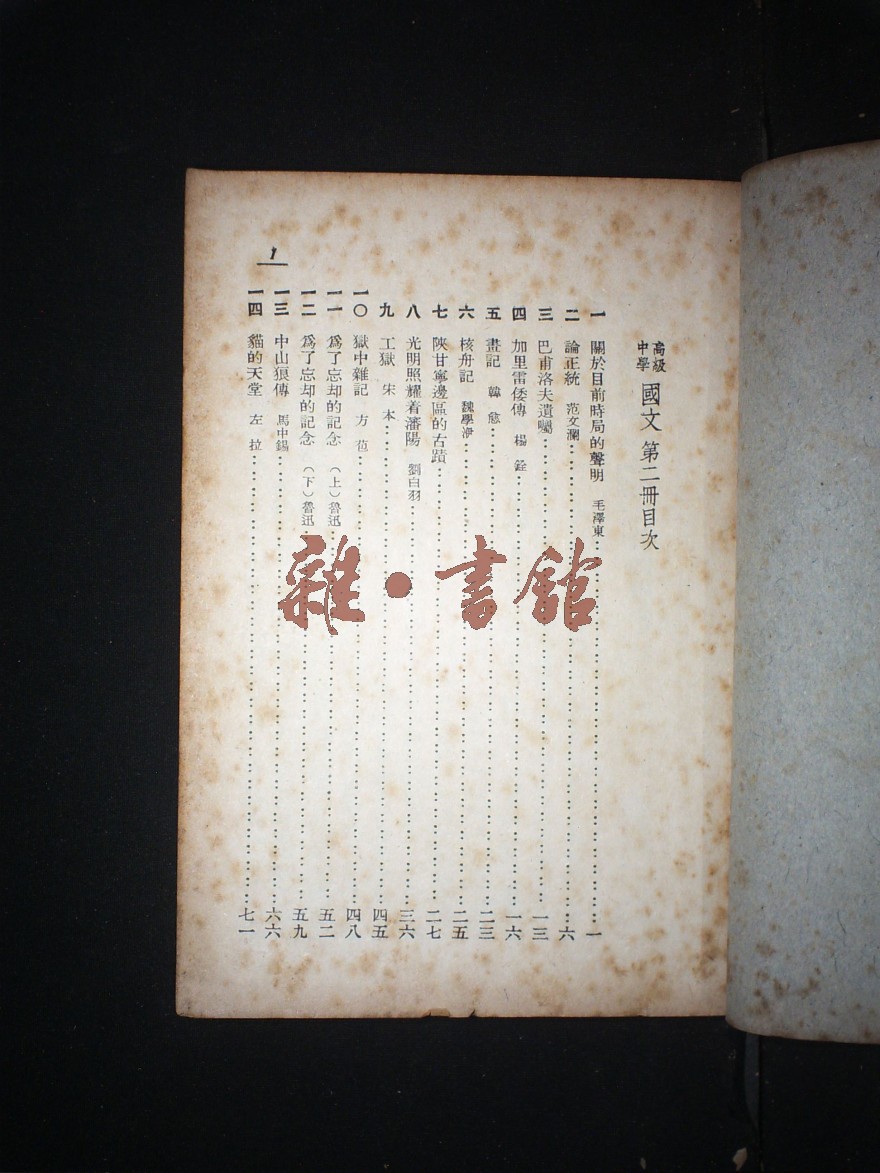 高級中學 國文 第二冊目次
一 關於目前時局的聲明 毛澤東 一
二 論正統 范文瀾 六
三 巴甫洛夫遺囑 一三
四 加里雷倭傳 楊銓 一六
五 畫記 韓愈 二三
六 核舟記 魏學洢 二五
七 陝甘寧邊區的古蹟 二七
八 光明照耀着瀋陽 劉白羽 三六
九 工獄 宋本 四五
一〇 獄中雜記 方苞 四八
一一 爲了忘却的記念 （上）魯迅 五二
一二 爲了忘却的記念 （下）魯迅 五九
一三 中山狼傳 馬中錫 六六
一四 貓的天堂 左拉 七一
1
雜·書館